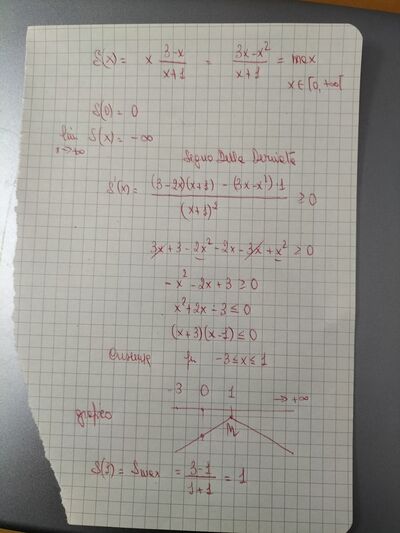 S(x) = x (3-x)/(x+1) = (3x-x²)/(x+1) = max
x∈[0,+∞[
S(0) = 0
lim S(x) = -∞
x→+∞
Segno Della Derivata
S'(x) = ((3-2x)(x+1) - (3x-x²)·1)/(x+1)² ≥0
3x+3-2x²-2x-3x+x² ≥0
-x²-2x+3≥0
x²+2x-3≤0
(x+3)(x-1)≤0
-3≤x≤1
-3 0 1 →+∞
grafico
M
S(1) = Smax = (3-1)/(1+1) = 1